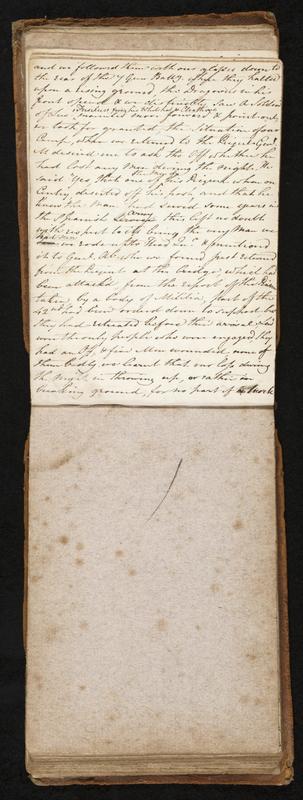 and we followed them with our glasses down to
the rear of the 7 Gun Batty. where they halted
upon a rising ground, the Dragoons in his
front opened & we distinctly saw a Soldier
of ours, mounted move forward & point out,
we took for granted, the situation of our
Camp, when we returned to the Piquet Genl.
M desired me to ask the Offr. whether he
had lost any Men during the night, He
said Yes, that one of the Piquet when on
Centry deserted his post and that he
knew the Man had served some years in
the Spanish Army this left no doubt
with respect to its being the very Man we
saw we rode to the Head Qrs. & mentioned
it to Genl. Ab. who we found just returned
from the Piquet at the bridge, which had
been attacked from the report of the
taken, by a body of Militia, part of the
42nd had been ordered down to support but
they had retreated before their arrival,
were the only people who were engaged, they
had an Off. & five Men wounded, none of
them badly, we learnt that our loss during
the night in throwing up, or rather in
breaking ground, for no part of a Work